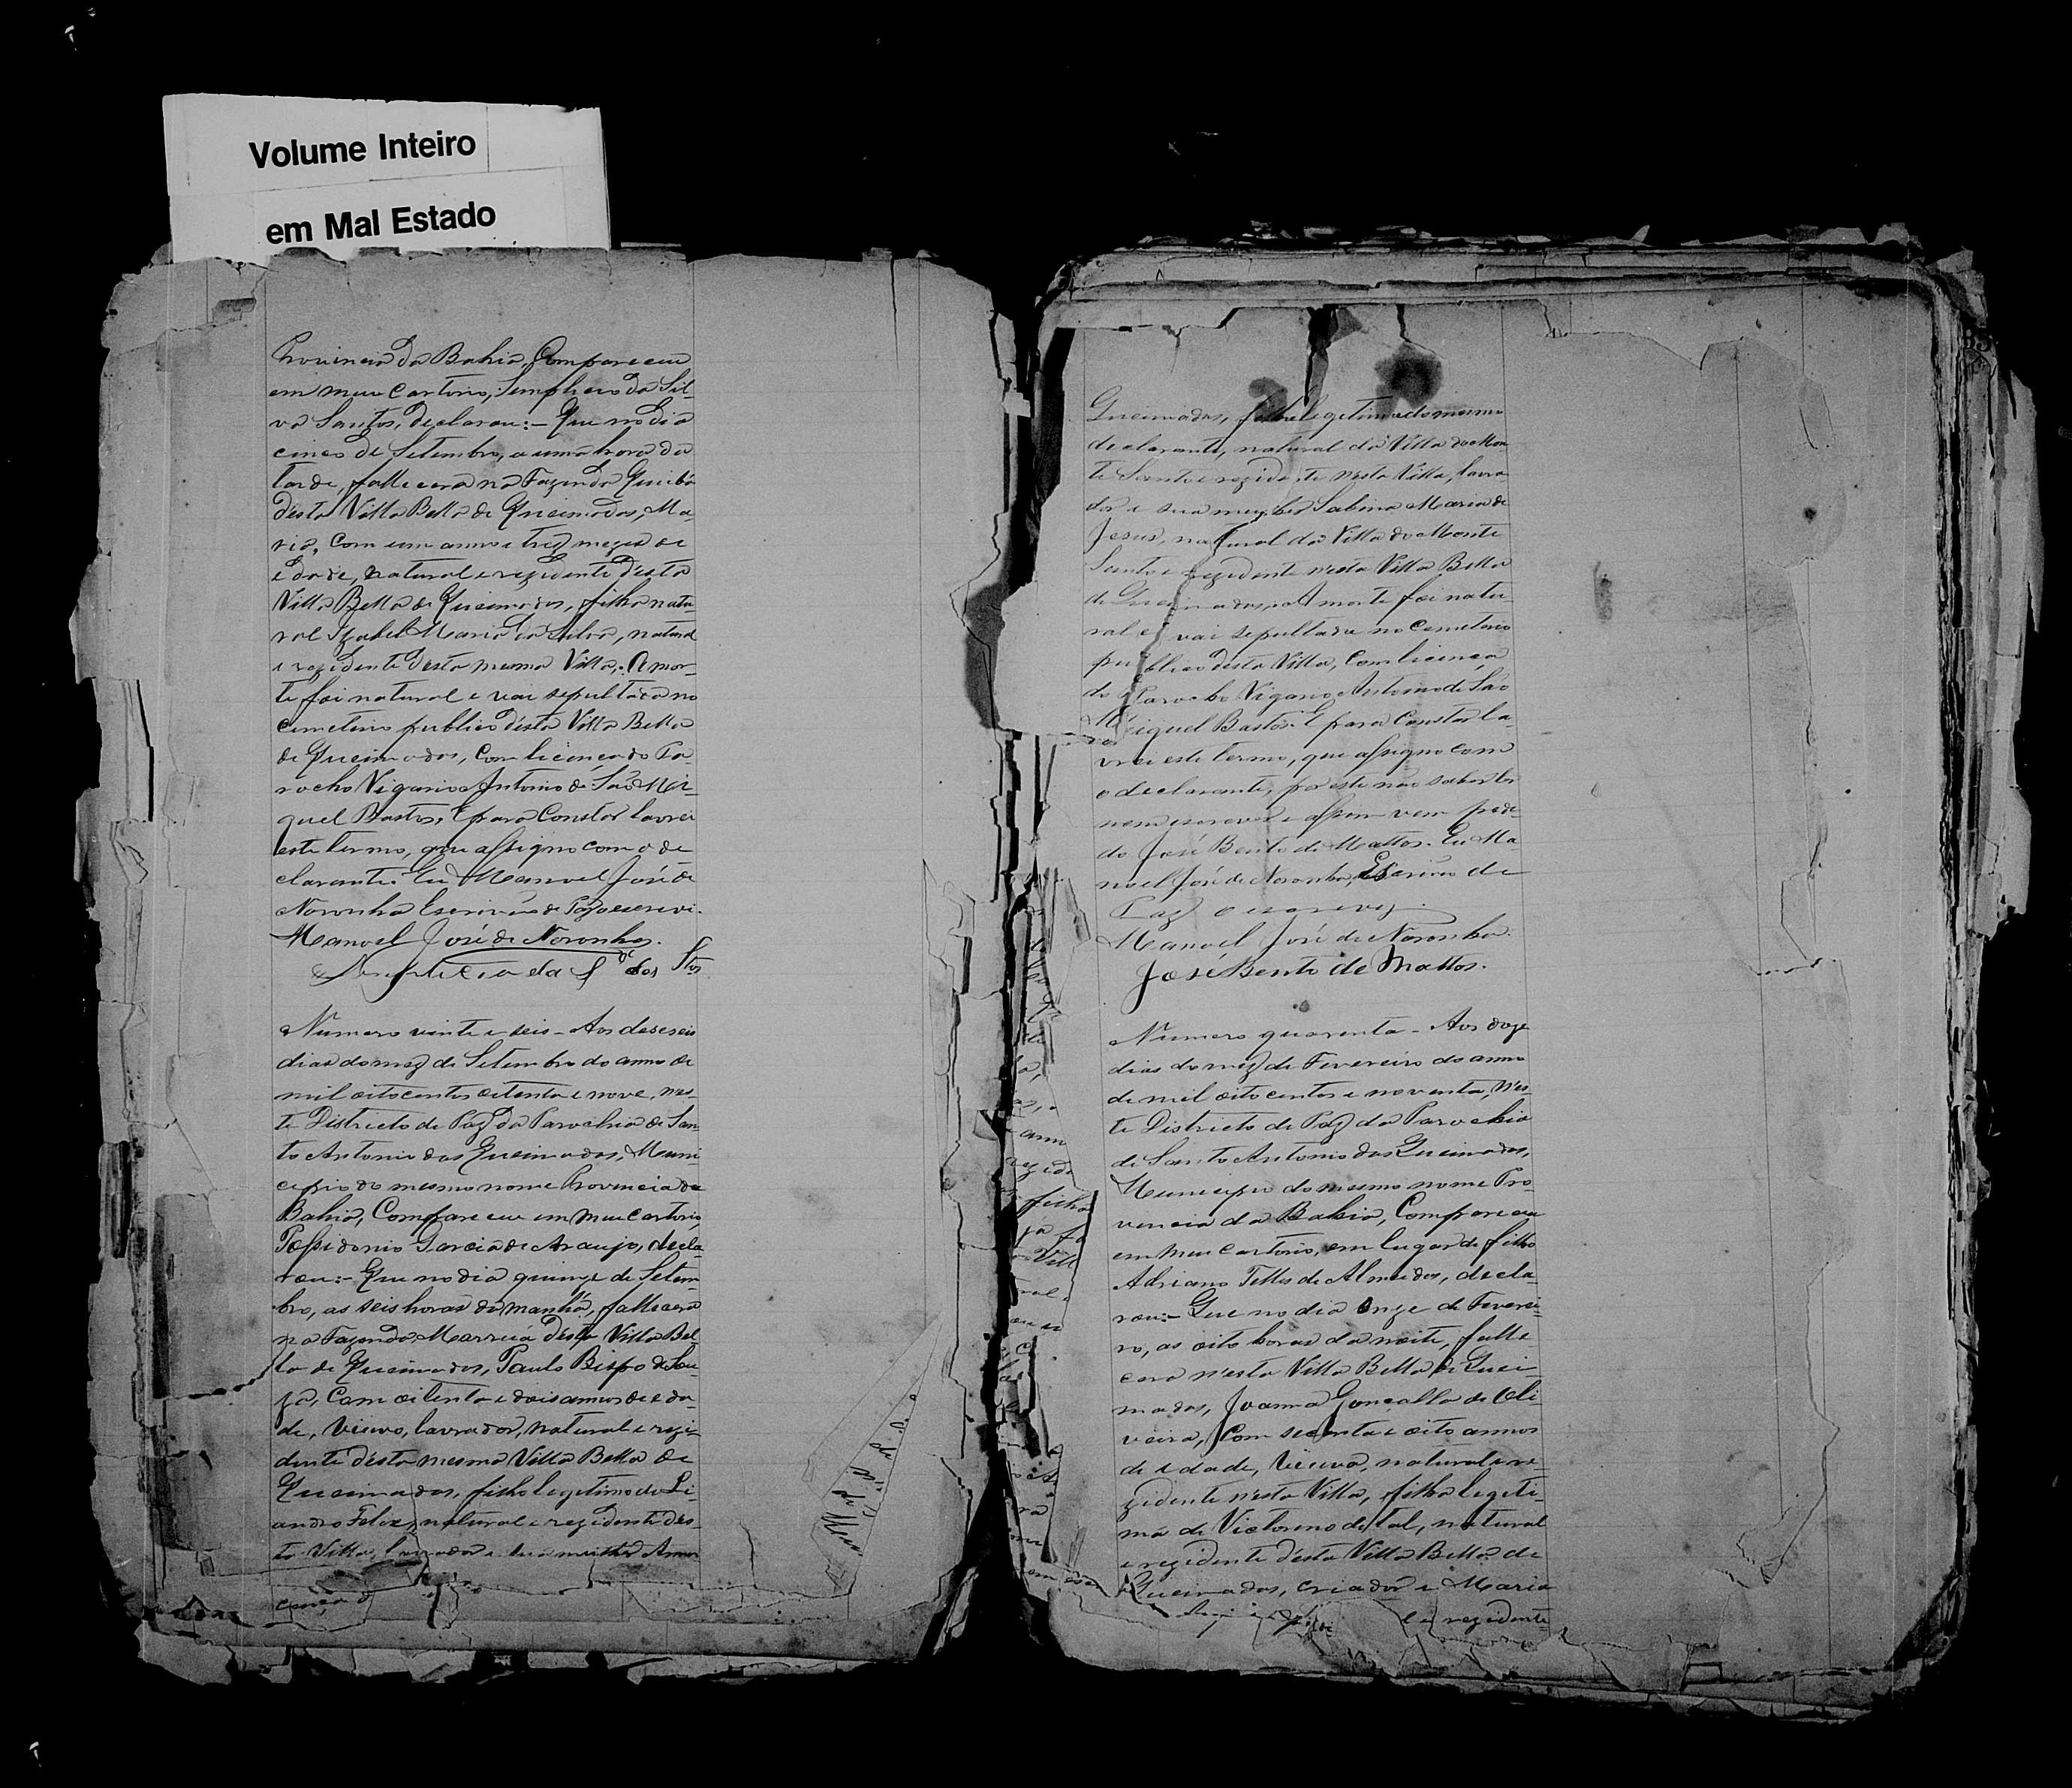 Volume Inteiro
em Mal Estado
Provincia da Bahia, Compareceu
em meu Cartorio, Simplicio da Sil-
va Santos, declarou:- Que no dia
cinco de Setembro, a uma hora da
tarde, fallecera na Fazenda
d'esta Villa Bella de Queimadas, Ma-
ria, com um anno e trez mezes de
edade, natural e rezidente d'esta
Villa Bella de Queimadas, filha natu-
ral Izabel Maria da Silva, natural
e rezidente desta mesma Villa. A mor-
te foi natural e vai sepultada no
cemeterio publico d'esta Villa Bella
de Queimadas, com licença do Pa-
rocho Vigario Antonio de São Mi-
guel Bastos. E para Constar lavrei
este termo, que assigno com o de-
clarante. Eu Manoel José de
Noronha Escrivão de Paz o escrevi.
Manoel José de Noronha.
Simplicio da Sª dos Stos
Numero vinte e seis - Aos deseseis
dias do mez de Setembro do anno de
mil oitocentos oitenta e nove, nes-
te Districto de Paz da Parochia de San-
to Antonio das Queimadas, Muni-
cipio do mesmo nome Provincia da
Bahia, Compareceu em meu cartorio,
Possidonio Garcia de Araujo, decla-
rou:- Que no dia quinze de Setem-
bro, as seis horas da manhã, fallecera
na Fazenda d'esta Villa Bel-
la de Queimadas, Paulo Bispo de Sou-
za, Com oitenta e dois annos de eda-
de, Viuvo, lavrador, natural e rezi-
dente d'esta mesma Villa Bella de
Queimadas, filho legitimo de Li-
andro Felix, natural e rezidente des-
ta Villa, lavrador e sua mulher Anna
Queimadas, filho legitimo do mesmo
declarante, natural da Villa do Mon-
te Santo e rezidente n'esta Villa, lavra-
dor e sua mulher Sabina Maria de
Jesus, natural da Villa do Monte
Santo e rezidente n'esta Villa Bella
de Queimadas. A morte foi natu-
ral e vai sepultada no Cemeterio
publico d'esta Villa, com licença
do Parocho Vigario Antonio de São
Miguel Bastos. E para Constar la-
vrei este termo, que assigno com
o declarante, por este não saber ler
nem escrever e assim vem pedi-
do José Bento de Mattos. Eu Ma-
noel José de Noronha, Escrivão de
Paz o escrevi.
Manoel José de Noronha.
José Bento de Mattos.
Numero quarenta - Aos doze
dias do mez de Fevereiro do anno
de mil oito centos e noventa, n'es-
te Districto de Paz da Parochia
de Santo Antonio das Queimadas,
Municipio do mesmo nome Pro-
vincia da Bahia, Compareceu
em meu cartorio, em lugar de filho
Adriano Telles de Almeida, decla-
rou:- Que no dia onze de Feverei-
ro, as oito horas da noite, falle-
cera n'esta Villa Bella de Quei-
madas, Joanna Gonçalla de Oli-
veira, Com secenta e oito annos
de edade, Viuva, natural e re-
zidente n'esta Villa, filha legiti-
ma de Victorino de tal, natural
e rezidente d'esta Villa Bella de
Queimadas, criador e Maria
e rezidente